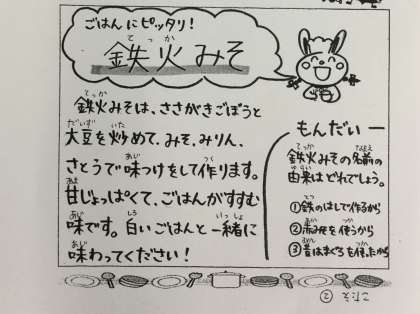 ごはんにピッタリ!
鉄火みそ
鉄火みそは、ささがきごぼうと
大豆を炒めて、みそ、みりん、
さとうで味つけをして作ります。
甘じょっぱくて、ごはんがすすむ
味です。白いごはんと一緒に
味わってください!
もんだい
鉄火みその名前の
由来はどれでしょう。
①鉄のはしで作るから
②赤みそを使うから
③昔はまぐろを使ったから